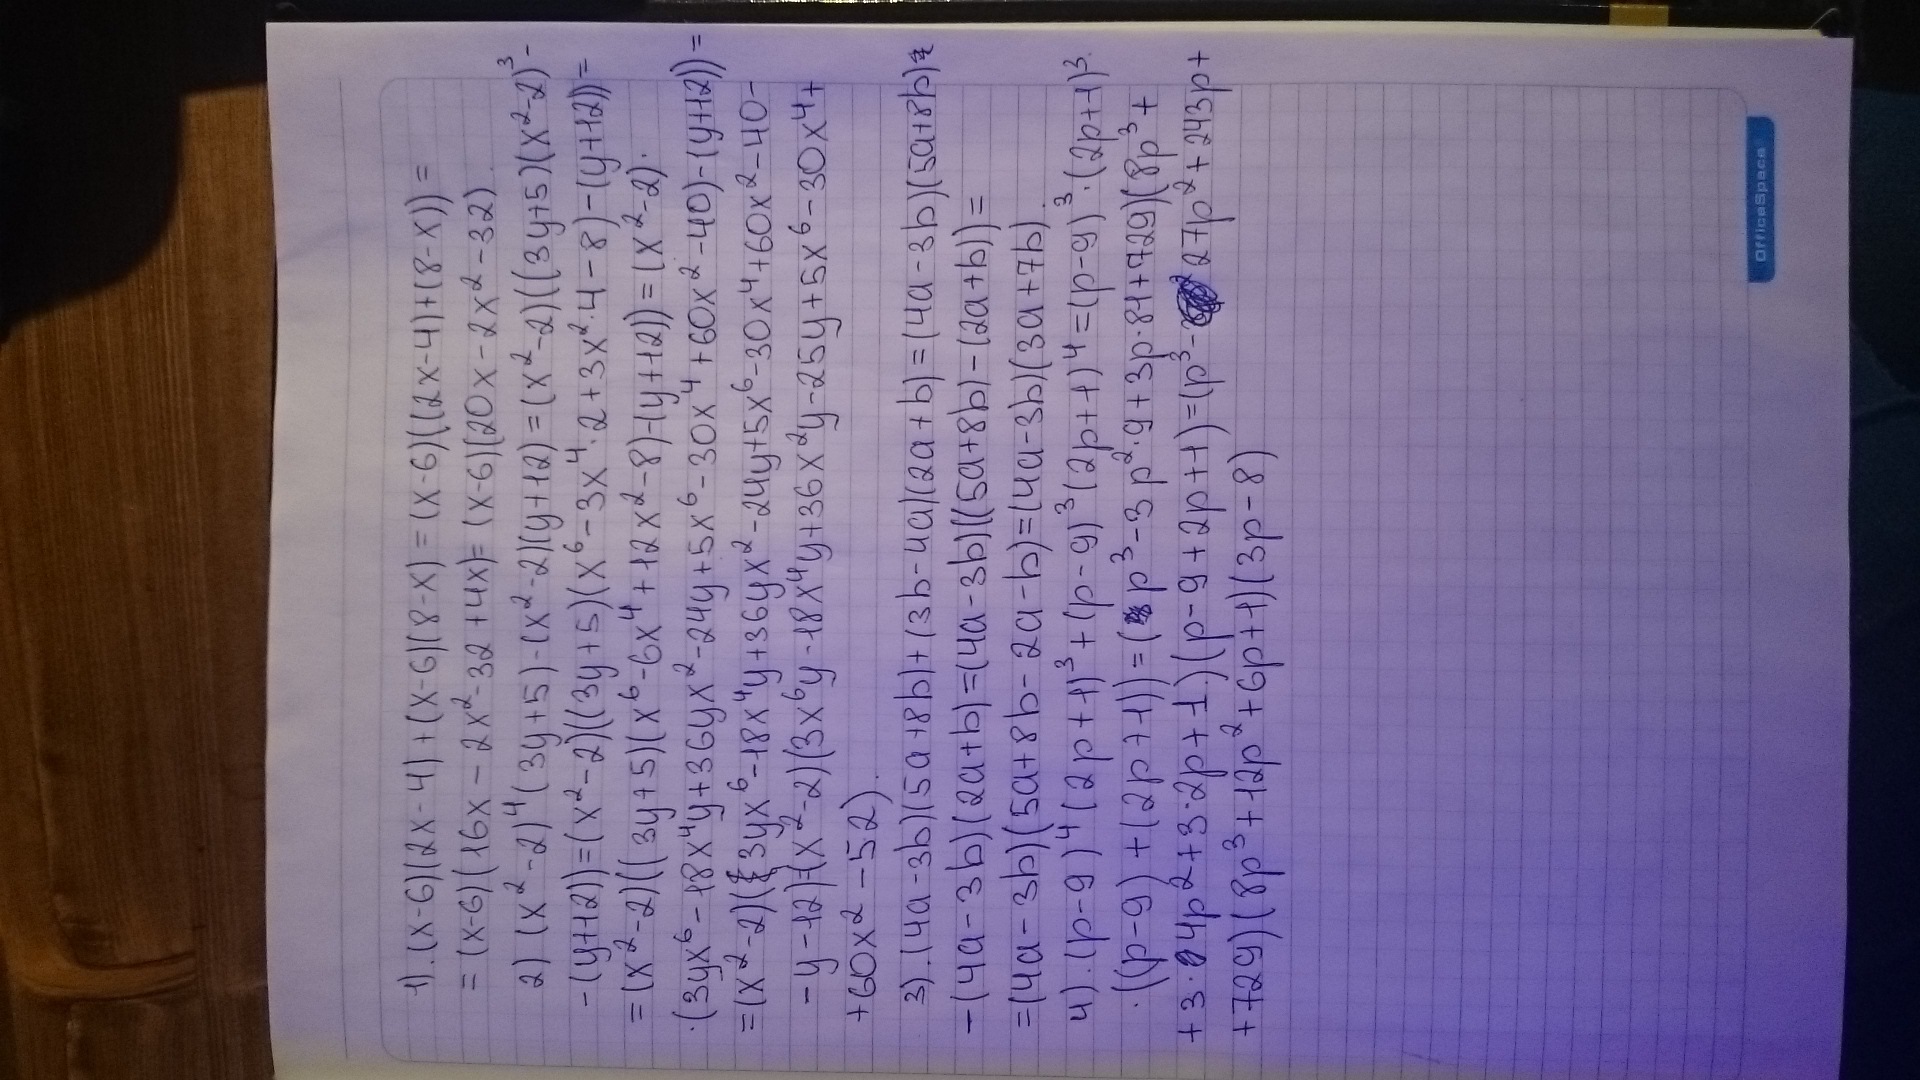 1).(x-6)(2x-4)+(x-6)(8-x)=(x-6)((2x-4)+(8-x))=
=(x-6)(16x-2x²-32+4x)=(x-6)(20x-2x²-32)
2) (x²-2)⁴(3y+5)-(x²-2)(y+12)=(x²-2)((3y+5)(x²-2)³-
-(y+12))=(x²-2)((3y+5)(x⁶-3x⁴·2+3x²·4-8)-(y+12))=
=(x²-2)((3y+5)(x⁶-6x⁴+12x²-8)-(y+12))=(x²-2)·
·(3yx⁶-18x⁴y+36yx²-24y+5x⁶-30x⁴+60x²-40)-(y+12))=
=(x²-2)(3yx⁶-18x⁴y+36yx²-24y+5x⁶-30x⁴+60x²-40-
-y-12)=(x²-2)(3x⁶y-18x⁴y+36x²y-25y+5x⁶-30x⁴+
+60x²-52).
3).(4a-3b)(5a+8b)+(3b-4a)(2a+b)=(4a-3b)(5a+8b)-
-(4a-3b)(2a+b)=(4a-3b)((5a+8b)-(2a+b))=
=(4a-3b)(5a+8b-2a-b)=(4a-3b)(3a+7b)
4).(p-9)⁴(2p+1)³+(p-9)³(2p+1)⁴=(p-9)³·(2p+1)³·
·((p-9)+(2p+1))=(p³-3p²·9+3p·81+729)(8p³+
+3·4p²+3·2p+1)(p-9+2p+1)=(p³-27p²+243p+
+729)(8p³+12p²+6p+1)(3p-8)
OfficeSpace